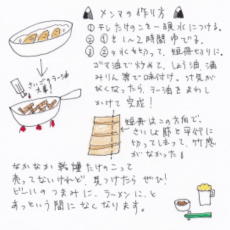 メンマの作り方
①干したけのこを一晩水につける。
②①を1〜2時間ゆでる。
③②の水を切って、短冊切りに。
ゴマ油で炒めて、しょう油、酒
みりん等で味付け。汁気が
なくなったら、ラー油をまわし
かけて完成!
さいごのラー油
大事!
短冊はこの方向で。
さいしょ節と平行に
切ってしまって、竹感
がなかった
なかなか乾燥たけのこって
売ってないけれど、見つけたら ぜひ!
ビールのつまみに、ラーメンに、と
あっという間になくなります。